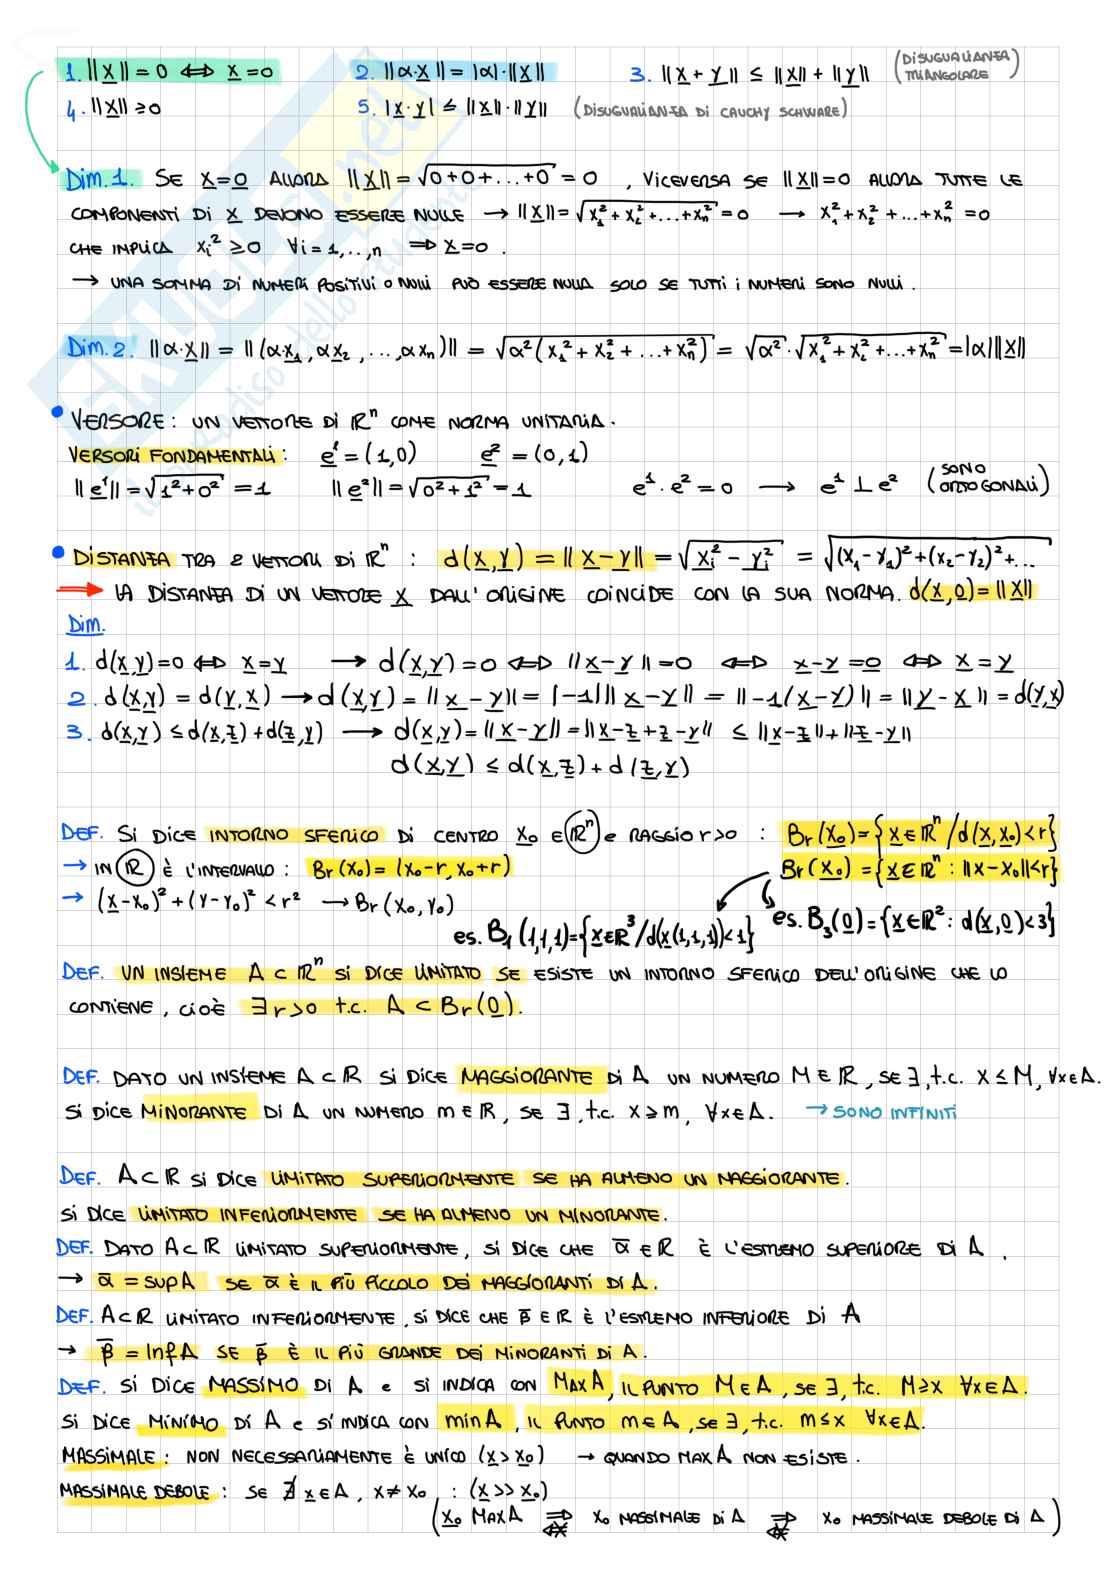 1. ||x|| = 0 ⟺ x = 0 2. ||α·x|| = |α|·||x|| 3. ||x + y|| ≤ ||x|| + ||y|| (DISUGUALIANZA TRIANGOLARE)
4. ||x|| ≥ 0 5. |x·y| ≤ ||x||·||y|| (DISUGUALIANZA DI CAUCHY SCHWARE)
Dim.1. SE x=0 ALLORA ||x|| = √(0+0+...+0) = 0 , VICEVERSA SE ||x||=0 ALLORA TUTTE LE
COMPONENTI DI x DEVONO ESSERE NULLE → ||x|| = √(x₁²+x₂²+...+xn²) = 0 → x₁²+x₂²+...+xn² = 0
CHE IMPLICA xi² ≥ 0 ∀i = 1,..,n ⟹ x=0 .
→ UNA SOMMA DI NUMERI POSITIVI O NULLI PUÒ ESSERE NULLA SOLO SE TUTTI I NUMERI SONO NULLI .
Dim.2. ||α·x|| = ||(α·x₁, αx₂, ..., αxn)|| = √(α²(x₁²+x₂²+...+xn²)) = √α² · √(x₁²+x₂²+...+xn²) = |α|||x||
• VERSORE : UN VETTORE DI ℝⁿ COME NORMA UNITARIA .
VERSORI FONDAMENTALI : e¹ = (1,0) e² = (0,1)
||e¹|| = √(1²+0²) = 1 ||e²|| = √(0²+1²) = 1 e¹ · e² = 0 → e¹ ⊥ e² (SONO ORTOGONALI)
• DISTANZA TRA 2 VETTORI DI ℝⁿ : d(x,y) = ||x-y|| = √(xi² - yi²) = √((x₁-y₁)²+(x₂-y₂)²+...
⟹ LA DISTANZA DI UN VETTORE x DALL'ORIGINE COINCIDE CON LA SUA NORMA. d(x,0) = ||x||
Dim.
1. d(x,y)=0 ⟺ x=y → d(x,y)=0 ⟺ ||x-y||=0 ⟺ x-y=0 ⟺ x=y
2. d(x,y) = d(y,x) → d(x,y) = ||x-y|| = |-1|||x-y|| = ||-1(x-y)|| = ||y-x|| = d(y,x)
3. d(x,y) ≤ d(x,z)+d(z,y) → d(x,y) = ||x-y|| = ||x-z+z-y|| ≤ ||x-z||+||z-y||
d(x,y) ≤ d(x,z) + d(z,y)
DEF. SI DICE INTORNO SFERICO DI CENTRO x₀ ∈ ℝⁿ e RAGGIO r>0 : Br(x₀) = {x ∈ ℝⁿ / d(x,x₀)<r}
→ IN ℝ È L'INTERVALLO : Br(x₀) = (x₀-r, x₀+r) Br(x₀) = {x ∈ ℝⁿ : ||x-x₀||<r}
→ (x-x₀)² + (y-y₀)² < r² → Br(x₀,y₀)
es. B₁(1,1,1) = {x∈ℝ³/d(x(1,1,1))<1} es. B₃(0) = {x∈ℝ² : d(x,0)<3}
DEF. UN INSIEME A ⊂ ℝⁿ SI DICE LIMITATO SE ESISTE UN INTORNO SFERICO DELL'ORIGINE CHE LO
CONTIENE , CIOÈ ∃ r>0 t.c. A ⊂ Br(0).
DEF. DATO UN INSIEME A ⊂ ℝ SI DICE MAGGIORANTE DI A UN NUMERO M ∈ ℝ, SE ∃, t.c. x ≤ M, ∀x∈A.
SI DICE MINORANTE DI A UN NUMERO m ∈ ℝ, SE ∃, t.c. x ≥ m, ∀x∈A. → SONO INFINITI
DEF. A ⊂ ℝ SI DICE LIMITATO SUPERIORMENTE SE HA ALMENO UN MAGGIORANTE .
SI DICE LIMITATO INFERIORMENTE SE HA ALMENO UN MINORANTE .
DEF. DATO A ⊂ ℝ LIMITATO SUPERIORMENTE, SI DICE CHE ᾱ ∈ ℝ È L'ESTREMO SUPERIORE DI A .
→ ᾱ = SUP A SE ᾱ È IL PIÙ PICCOLO DEI MAGGIORANTI DI A.
DEF. A⊂ℝ LIMITATO INFERIORMENTE, SI DICE CHE β̄ ∈ ℝ È L'ESTREMO INFERIORE DI A
→ β̄ = Inf A SE β̄ È IL PIÙ GRANDE DEI MINORANTI DI A.
DEF. SI DICE MASSIMO DI A e SI INDICA CON MAX A, IL PUNTO M ∈ A, SE ∃, t.c. M ≥ x ∀x∈A.
SI DICE MINIMO DI A e SI INDICA CON min A, IL PUNTO m ∈ A, SE ∃, t.c. m ≤ x ∀x∈A.
MASSIMALE : NON NECESSARIAMENTE È UNICO (x > x₀) → QUANDO MAX A NON ESISTE .
MASSIMALE DEBOLE : SE ∄ x ∈ A, x ≠ x₀ , : (x >> x₀)
(x₀ MAX A ⇏ ⟹ x₀ MASSIMALE DI A ⇏ ⟹ x₀ MASSIMALE DEBOLE DI A)